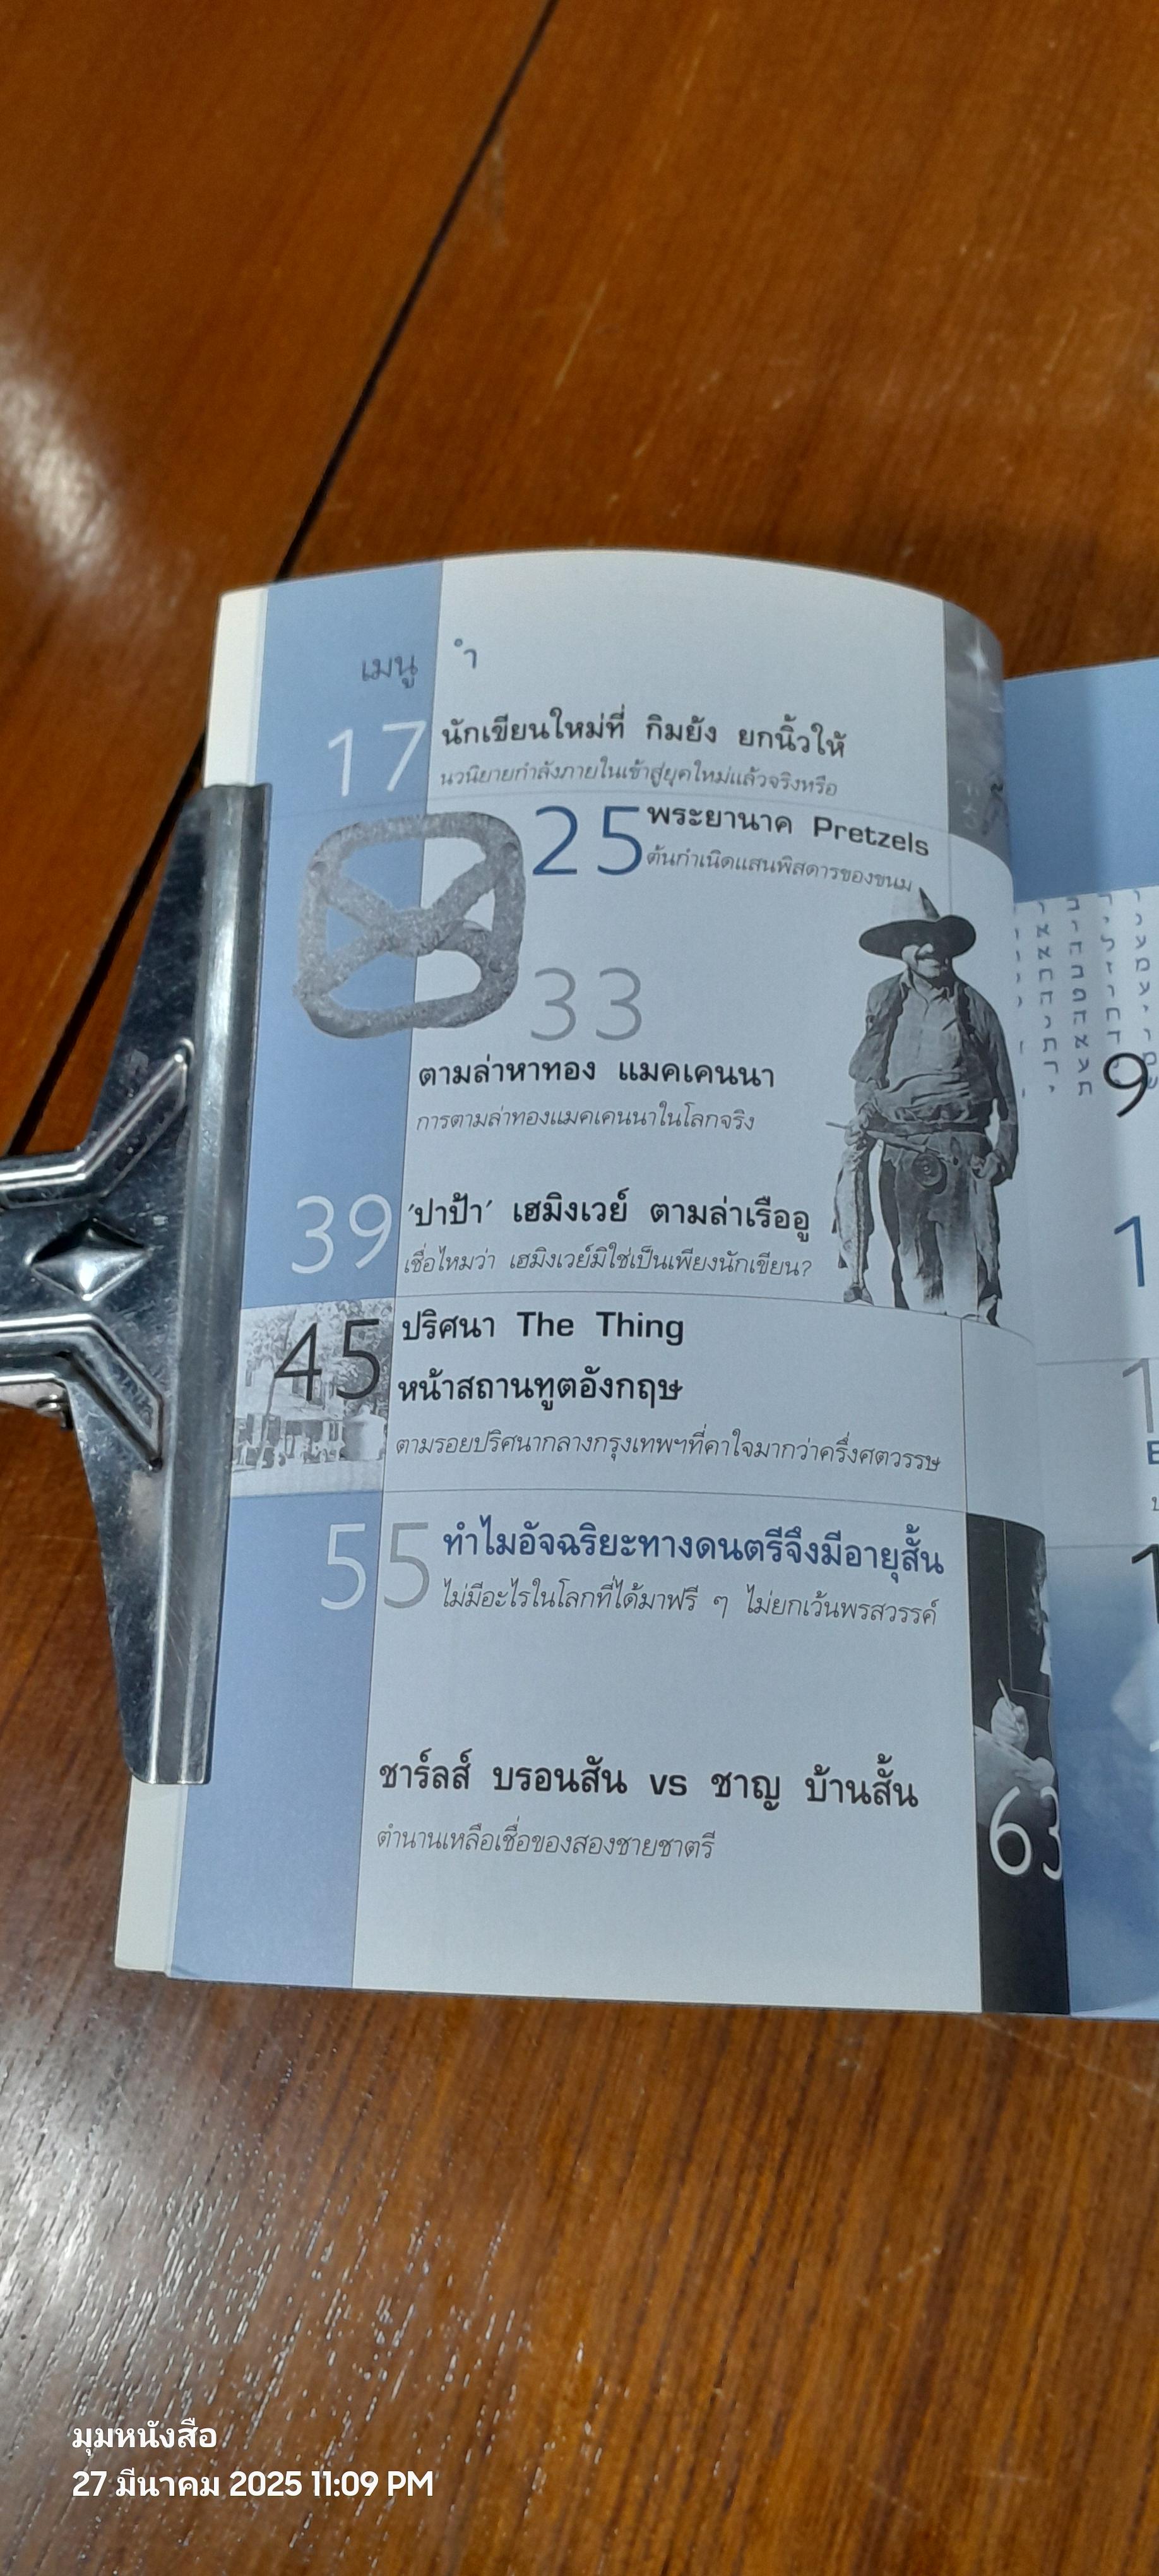 เมนู ำ
17 นักเขียนใหม่ที่ กิมย้ง ยกนิ้วให้
นวนิยายกำลังภายในเข้าสู่ยุคใหม่แล้วจริงหรือ
25 พระยานาค Pretzels
ต้นกำเนิดแสนพิสดารของขนม
33
ตามล่าหาทอง แมคเคนนา
การตามล่าทองแมคเคนนาในโลกจริง
39 'ปาป้า' เฮมิงเวย์ ตามล่าเรืออู
เชื่อไหมว่า เฮมิงเวย์มิใช่เป็นเพียงนักเขียน?
45 ปริศนา The Thing
หน้าสถานทูตอังกฤษ
ตามรอยปริศนากลางกรุงเทพฯที่คาใจมากว่าครึ่งศตวรรษ
55 ทำไมอัจฉริยะทางดนตรีจึงมีอายุสั้น
ไม่มีอะไรในโลกที่ได้มาฟรี ๆ ไม่ยกเว้นพรสวรรค์
ชาร์ลส์ บรอนสัน vs ชาญ บ้านสั้น
ตำนานเหลือเชื่อของสองชายชาตรี
63
9
มุมหนังสือ
27 มีนาคม 2025 11:09 PM